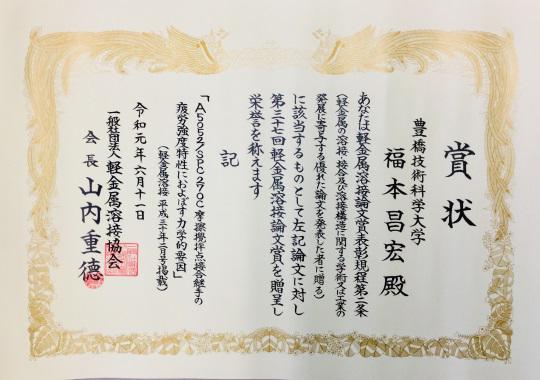 賞状
豊橋技術科学大学
福本昌宏殿
あなたは軽金属溶接論文賞表彰規程第二条
（軽金属の溶接、接合及び溶接構造に関する学術又は工業の
発展に寄与する優れた論文を発表した者に贈る）
に該当するものとして左記論文に対し
第三十七回軽金属溶接論文賞を贈呈し
栄誉を称えます
記
「A5052/SPC270C摩擦攪拌点接合継手の
疲労強度特性におよぼす力学的要因」
（軽金属溶接 平成三十年二月号掲載）
令和元年六月十一日
一般社団法人軽金属溶接協会
会長 山内重德